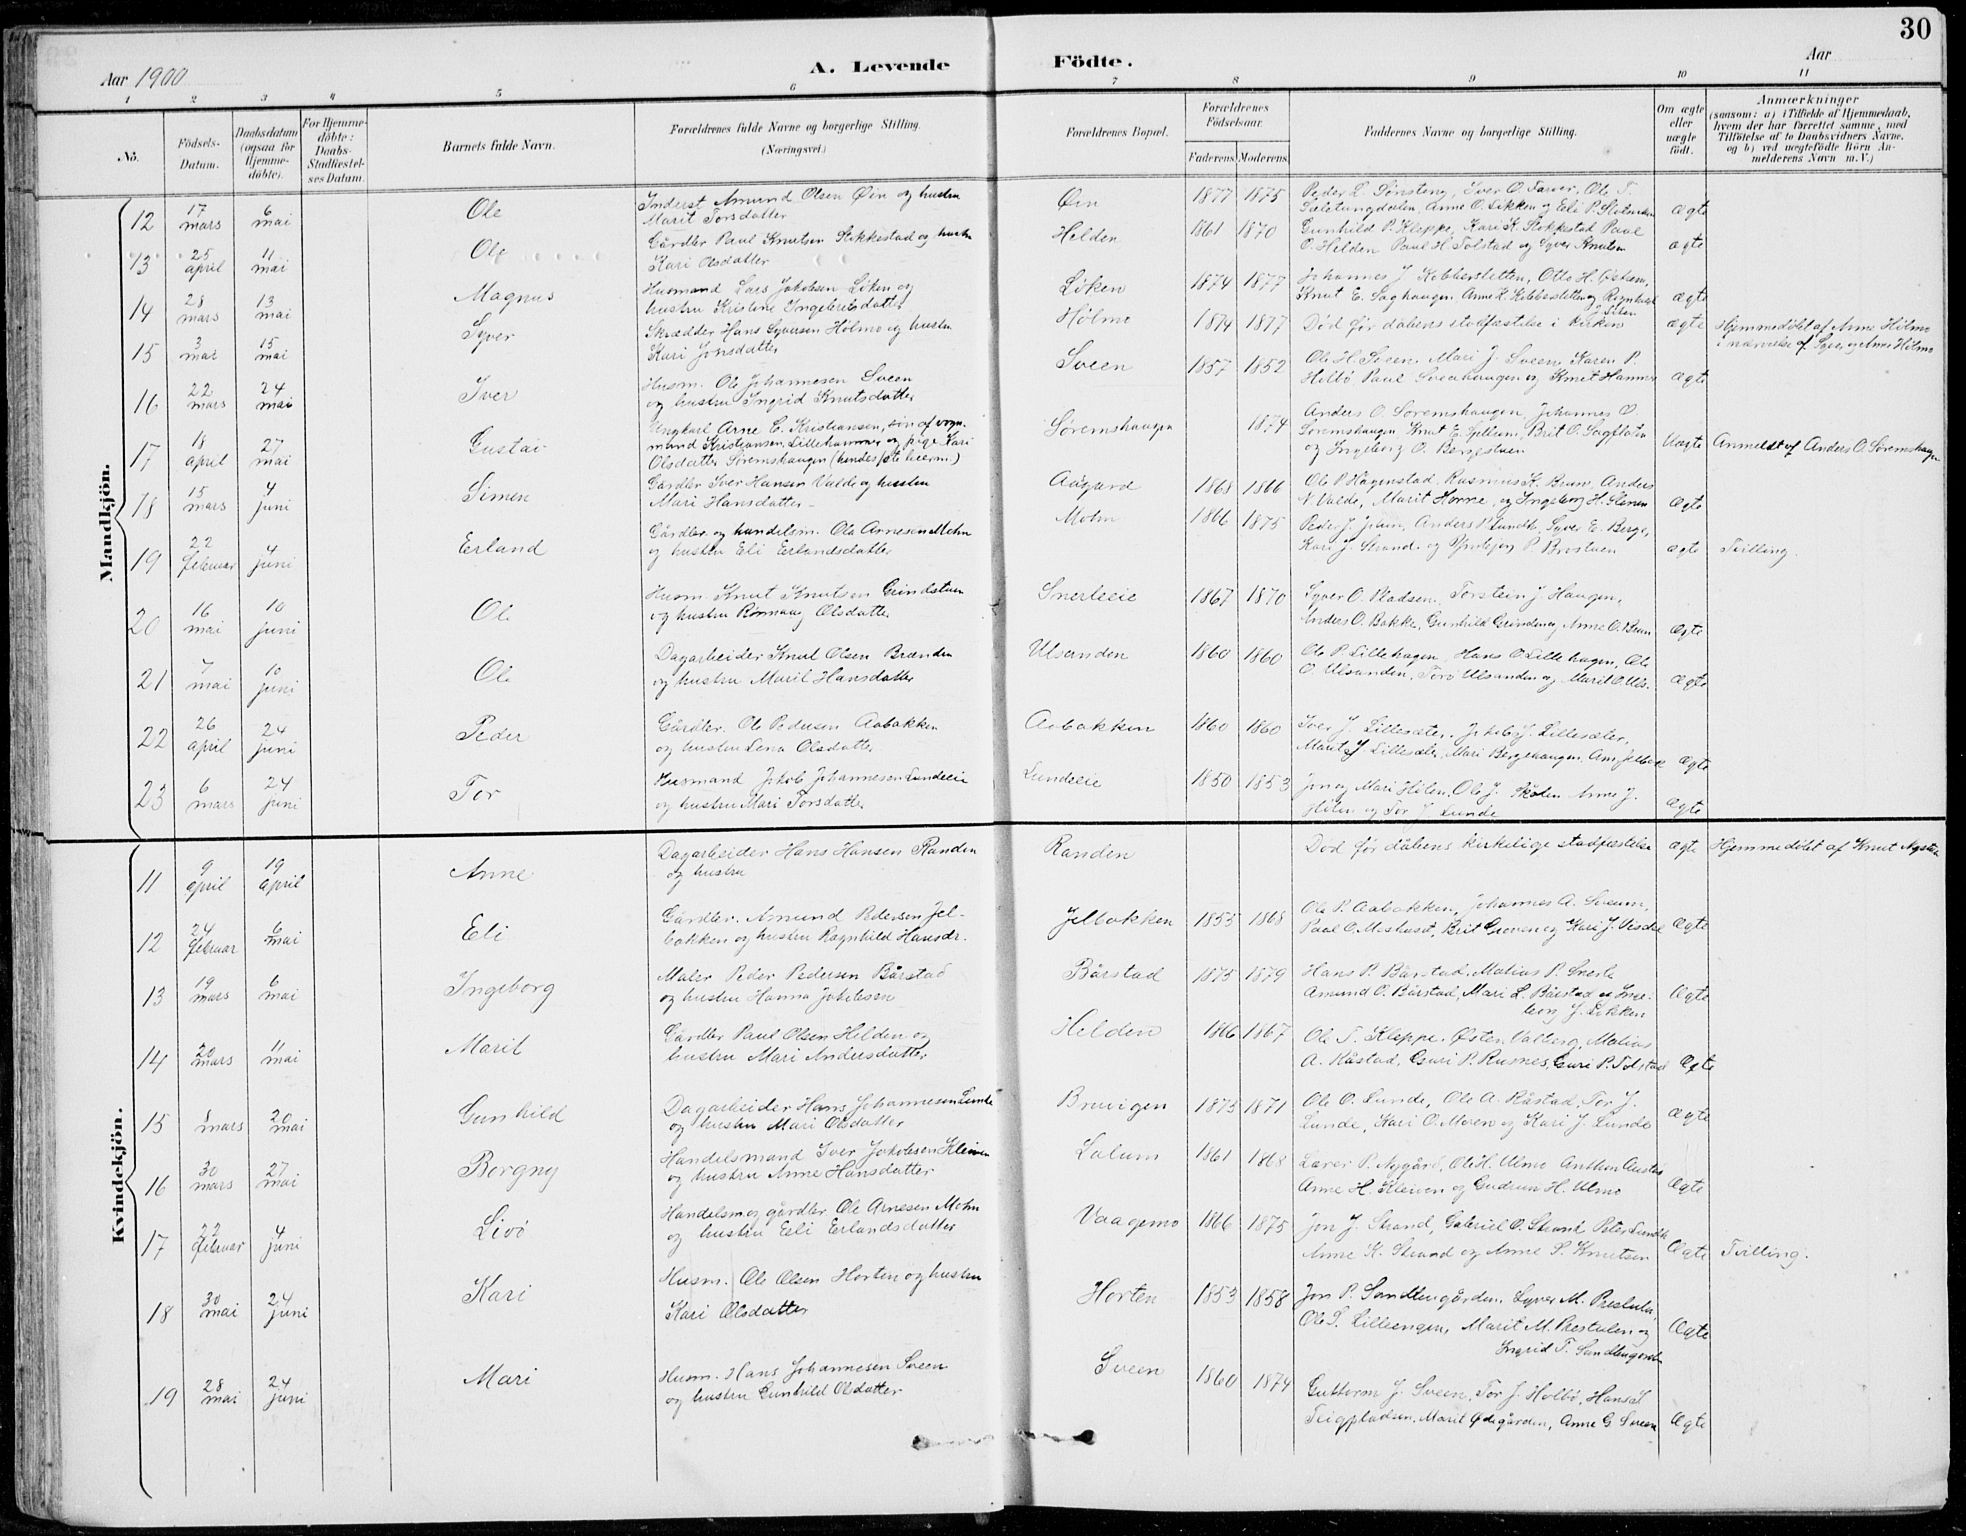 30
Aar 1900
A. Levende Födte.
Aar
1 2 3 4 5 6 7 8 9 10 11
No.
Födsels-Datum.
Daabsdatum (ogsaa for Hjemme-döbte).
For Hjemme-döbte: Daabs-Stadfæstel-ses Datum.
Barnets fulde Navn.
Forældrenes fulde Navne og borgerlige Stilling. (Næringsvei.)
Forældrenes Bopæl.
Forældrenes Födselsaar.
Faderens. Moderens.
Faddernes Navne og borgerlige Stilling.
Om ægte eller uægte födt.
Anmærkninger
(saasom: a) i Tilfælde af Hjemmedaab,
hvem der har forrettet samme, med
Tilföielse af to Daabsvidners Navne,
og b) ved uægtefödte Börn An-
melderens Navn m. V.)
Mandkjön.
12 17 mars 6 mai Ole Inderst Amund Olsen Øin og hustru Marit Torsdatter Øin 1877 1875 Ægte
13 25 april 11 mai Ole Gårdbr Paul Knutsen Stikkestad og hustru Kari Olsdatter Helden 1861 1870 Gunhild P. Kleppe, Kari K. Stokkestad Paul O. Helden Paul H. Tolstad og Syver Knutsen ægte
14 28 mars 13 mai Magnus Husmand Lars Jakobsen Løken og hustru Kristine Ingebretsdatter Løken 1874 1877 Ægte
15 3 mai 15 mai Syver Skrædder Hans Syversen Hølmo og hustru Kari Jonsdatter Hølmo 1874 1877 Død før dåbens stadfæstelse i kirken ægte Hjemmedøbt af Anne Hølmo i nærværelse af Syver og Anne Hølmo
16 22 mars 24 mai Iver Husm. Ole Johannesen Sveen og hustru Ingrid Knutsdatter Sveen 1857 1852 Ole H. Sveen, Mari J. Sveen, Karen P. Holbø Paul Sveahaugen og Knut Ægte
17 18 april 27 mai Gustav Ungkarl Arne C. Kristiansen, søn af vogn-mand Kristiansen, Lillehammer og pige Kari Olsdatter Søremshaugen (hendes 1ste leierm.) Søremshaugen 1874 Anders O. Søremshaugen, Johannes O. Søremshaugen Knut E. Brit O. og Ingeborg O. Bergestuen Uægte Anmeldt af Anders O. Søremshaugen
18 15 mars 4 juni Simen Gårdbr Iver Hansen Valde og hustru Mari Hansdatter Aagard 1868 1866 Ole P. Hågenstad, Rasmus K. Brun, Anders N. Valde, Marit Horne, og Ingeborg H. Ægte
19 22 februar 4 juni Erland Gårdbr og handelsm. Ole Arnesen Mohn og hustru Eli Erlandsdatter Mohn 1866 1875 Anders P. Lundt, Syver E. Berge, Kari J. Strand og P. Brostuen ægte Tvilling.
20 16 mai 10 juni Ole Husm. Knut Knutsen Grindstuen og hustru Rønnaug Olsdatter Snerleeie 1867 1870 Syver O. Pladsen, Torstein J. Haugen, Anders O. Bakke, Gunhild Grinden og Anne O. Brun Ægte
21 7 mai 10 juni Ole Dagarbeider Knut Olsen Brænden og hustru Marit Hansdatter Ulsanden 1860 1860 Ole P. Lillehagen, Hans O. Lillehagen, Ole O. Ulsanden, Toro Ulsanden og Marit O. Uls. Ægte
22 26 april 24 juni Peder Gårdbr. Ole Pedersen Aabakken og hustru Lena Olsdatter Aabakken 1860 1860 Iver J. Lillesæter, Jakob J. Lillesæter, Marit J Lillesæter, Mari Bergehaugen, Ægte
23 6 mars 24 juni Tor Husmand Jakob Johannesen Lundeeie og hustru Mari Torsdatter Lundeeie 1850 1853 Jon og Mari Hølen, Ole J. Anne J. Hølen og Tor J. Lunde Ægte
Kvindekjön.
11 9 april 19 april Anne Dagarbeider Hans Hansen Randen og hustru Randen Død før dåbens kirkelige stadfæstelse Ægte Hjemmedøbt af Knut
12 24 februar 6 mai Eli Gårdbr. Amund Pedersen Jel-bakken og hustru Ragnhild Hansdr. Jelbakken 1853 1868 Ole P. Aabakken, Johannes A. Sveum, Paul O. Mishuset, Brit Groven og Kari J. Visdal Ægte
13 19 mars 6 mai Ingeborg Maler Peder Pedersen Bårstad og hustru Hanna Jakobsen Bårstad 1875 1879 Hans P. Bårstad, Matias P. Snerle Amund O. Bårstad, Mari L. Bårstad og Inge-borg J. Løkken Ægte
14 20 mars 11 mai Marit Gårdbr Paul Olsen Helden og hustru Mari Andersdatter Helden 1866 1867 Ole T. Kleppe, Østen Valberg, Matias A. Råstad, Guri P. Rusnes, Guri P. Tolstad Ægte
15 8 mars 20 mai Gunhild Dagarbeider Hans Johannesen Lunde og hustru Mari Olsdatter Bruvigen 1875 1871 Ole O. Lunde, Ole A. Råstad, Tor J. Lunde, Kari O. Moren og Kari J. Lunde Ægte
16 30 mars 27 mai Borgny Handelsmand Iver Jakobsen Kleiven og hustru Anne Hansdatter Lalum 1861 1868 Lærer P. Nygård, Ole H. Ulmo Anthon Anne H. Kleiven og Gudrun H. Ulmo Ægte
17 22 februar 4 juni Livø Handelsm og gårdbr. Ole Arnesen Mohn og hustru Eli Erlandsdatter Vaagemo 1866 1875 Jon J. Strand, Gabriel O. Strand Peter Lundt Anne K. Strand og Anne S. Knutsen Ægte Tvilling.
18 30 mai 24 juni Kari Husm. Ole Olsen Horten og hustru Kari Olsdatter Horten 1853 1858 Jon P. Sandbugården, Syver M. Prestulen, Ole S. Lilleengen, Marit M. Prestulen og Ingrid T. Ægte
19 28 mai 24 juni Mari Husm. Hans Johannesen Sveen og hustru Gunhild Olsdatter Sveen 1860 1874 Guttorm J. Sveen, Tor J. Holbø, Hans Teigpladsen, Marit Ødegården, Anne G Sveen Ægte